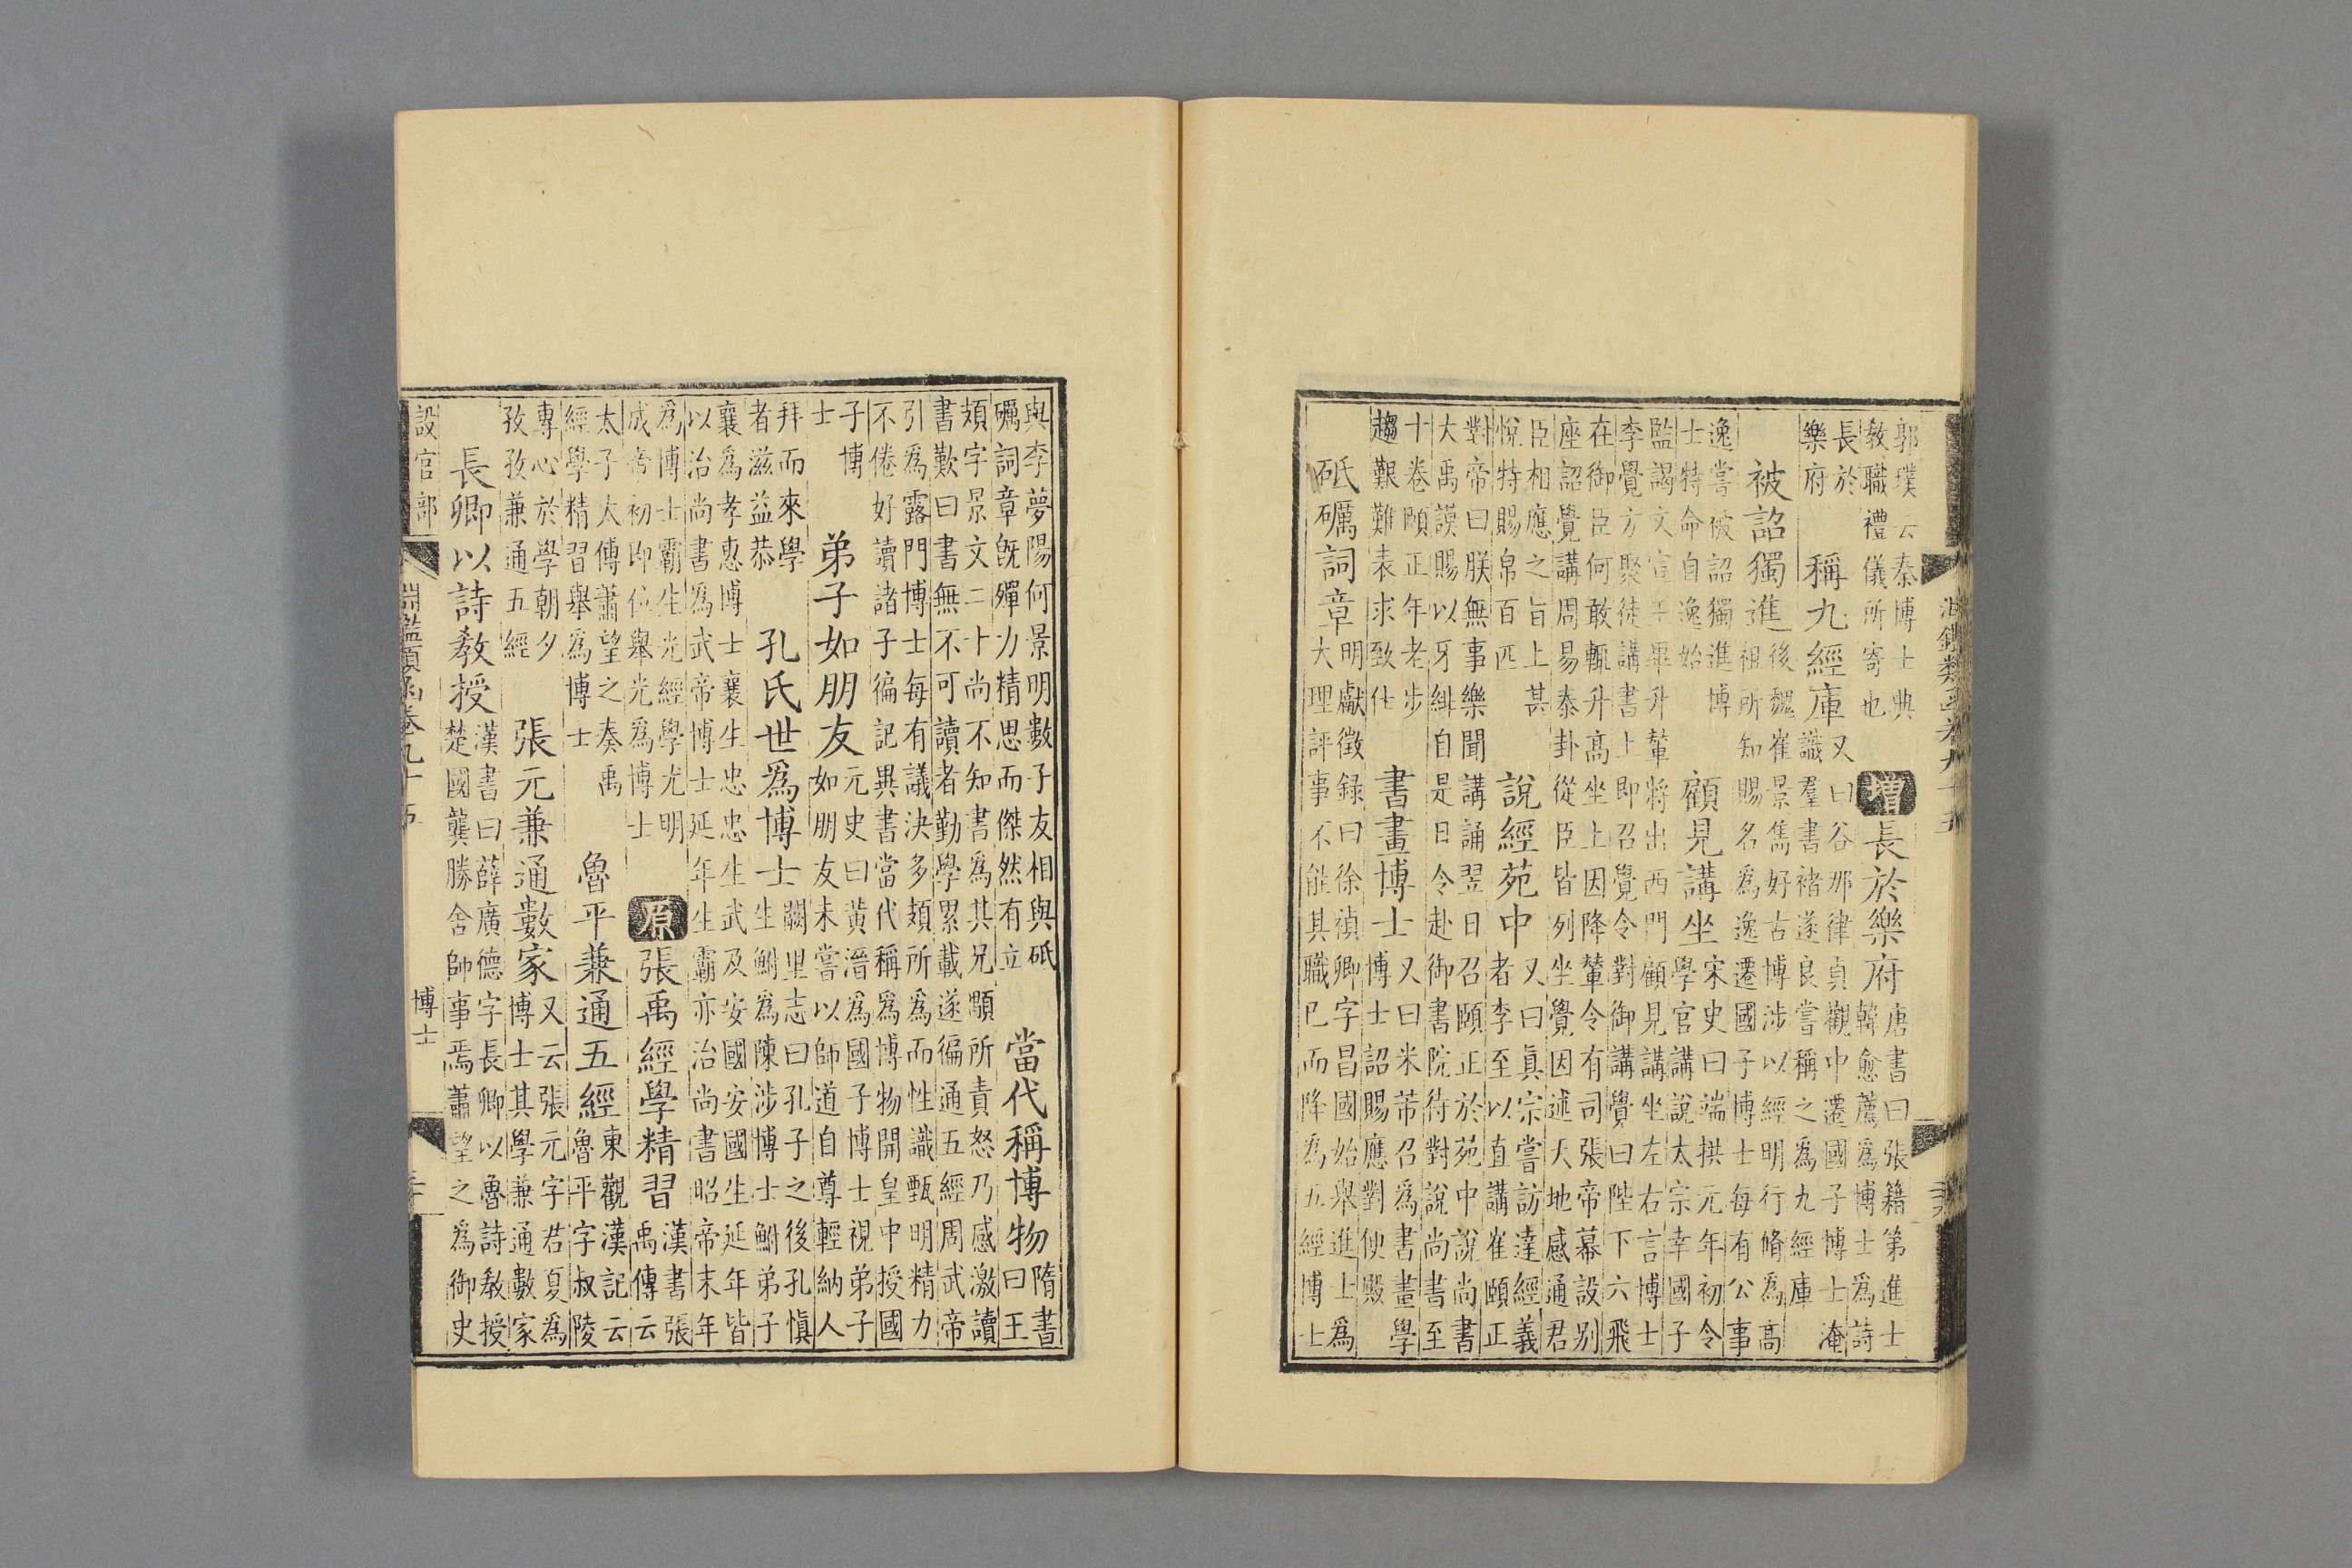 郭璞云秦博士典
教職禮儀所寄也
增長於樂府
唐書曰張籍第進士
韓愈薦為博士為詩
長於
樂府
稱九經庫
又曰谷那律貞觀中遷國子博士淹
識羣書褚遂良嘗稱之為九經庫
被詔獨進
後魏崔景雋好古博涉以經明行脩為高
祖所知賜名為逸遷國子博士每有公事
逸嘗被詔獨進博
士特命自逸始
顧見講坐
宋史曰端拱元年初令
學官講說太宗幸國子
監謁文宣王畢升輦將出西門顧見講坐左右言博士
李覺方聚徒講書上即召覺令對御講覺曰陛下六飛
在御臣何敢輒升高坐上因降輦令有司張帝幕設別
座詔覺講周易泰卦從臣皆列坐覺因述天地感通君
臣相應之旨上甚
悅特賜帛百匹
說經苑中
又曰真宗嘗訪達經義
者李至以直講崔頤正
對帝曰朕無事樂聞講誦翌日召頤正於苑中說尚書
大禹謨賜以牙緋自是日令赴御書院待對說尚書至
十卷頤正年老步
趨艱難表求致仕
書畫博士
又曰米芾召為書畫學
博士詔賜應對便殿
砥礪詞章
明獻徵録曰徐禎卿字昌國始舉進士為
大理評事不能其職已而降為五經博士
與李夢陽何景明數子友相與砥
礪詞章既殫力精思而傑然有立
當代稱博物
隋書
曰王
頍字景文二十尚不知書為其兄顒所責怒乃感激讀
書歎曰書無不可讀者勤學累載遂徧通五經周武帝
引為露門博士每有議決多頍所為而性識甄明精力
不倦好讀諸子徧記異書當代稱為博物開皇中授國
子博
士
弟子如朋友
元史曰黃溍為國子博士視弟子
如朋友未嘗以師道自尊輕納人
拜而來學
者滋益恭
孔氏世為博士
闕里志曰孔子之後孔慎
生鮒為陳涉博士鮒弟子
襄為孝惠博士襄生忠忠生武及安國安國生延年皆
以治尚書為武帝博士延年生霸亦治尚書昭帝末年
為博士霸生光經學尤明
成帝初即位舉光為博士
原張禹經學精習
漢書張
禹傳云
太子太傅蕭望之奏禹
經學精習舉為博士
魯平兼通五經
東觀漢記云
魯平字叔陵
專心於學朝夕
孜孜兼通五經
張元兼通數家
又云張元字君夏為
博士其學兼通數家
長卿以詩教授
漢書曰薛廣德字長卿以魯詩教授
楚國龔勝舍師事焉蕭望之為御史
設官部
博士